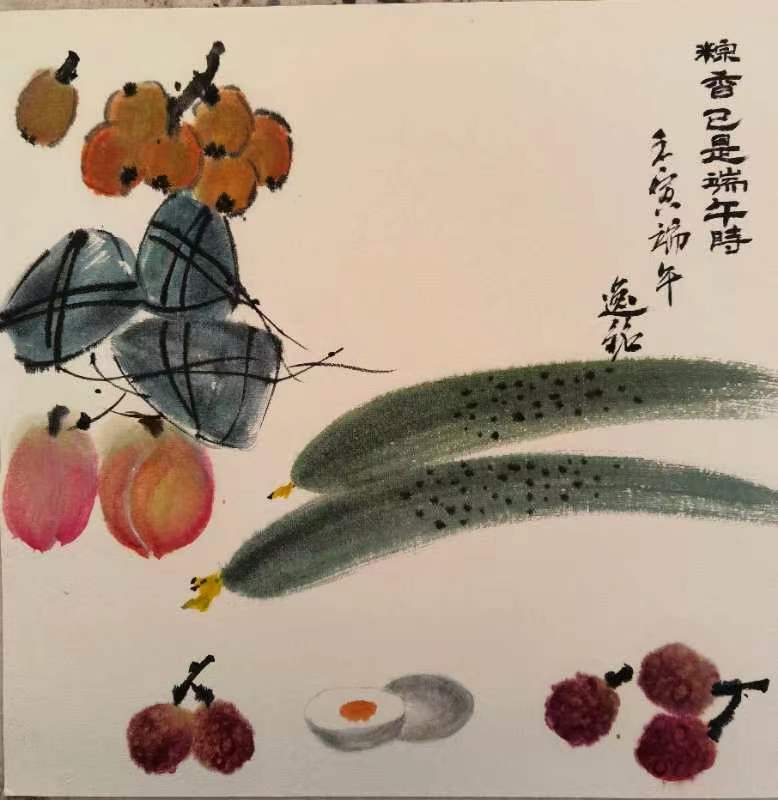 粽香已是端午時
壬寅端午
逸銘